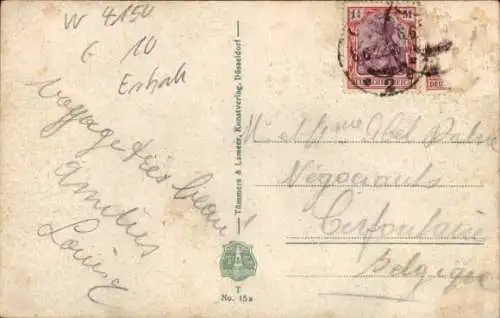 W 4150
6 10
Voyage très beau!
Amitiés
Louise
Tümmers & Lamers, Kunstverlag, Düsseldorf
T
No. 15a
M. et Mme Abel
Négociants
Cerfontaine
Belgique